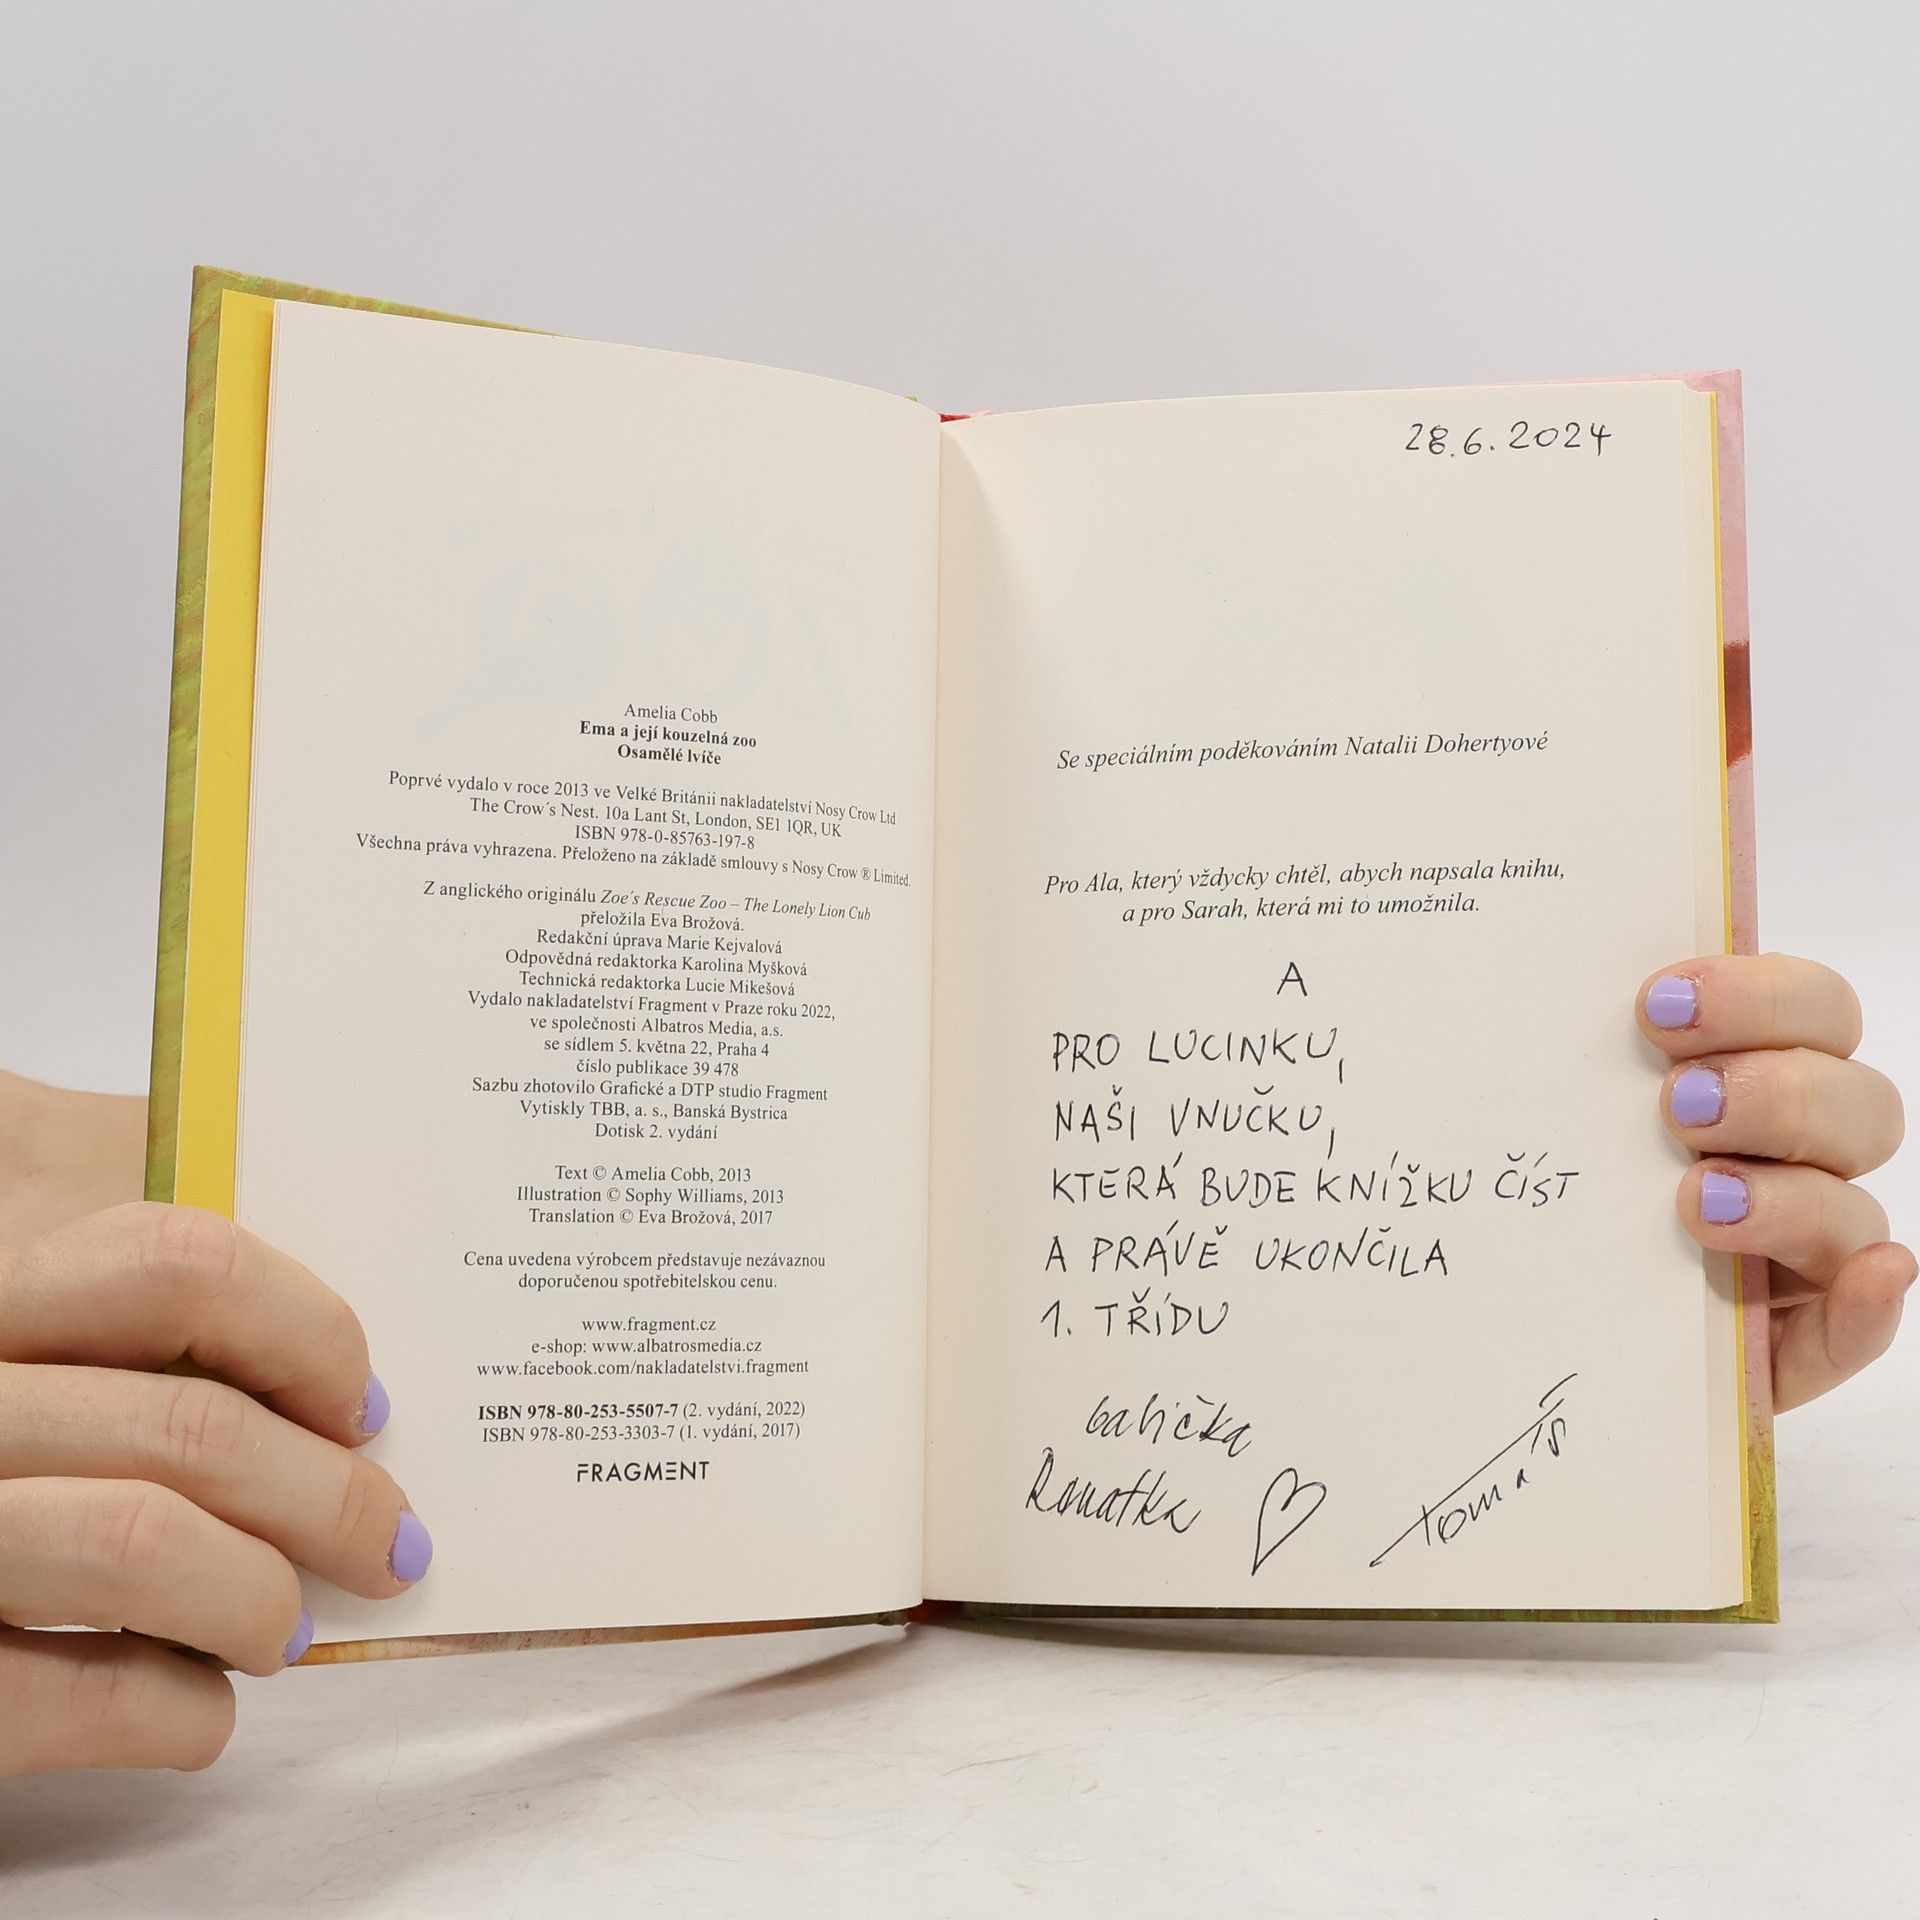 Amelia Cobb
Ema a její kouzelná zoo
Osamělé lvíče
Poprvé vydalo v roce 2013 ve Velké Británii nakladatelství Nosy Crow Ltd
The Crow´s Nest. 10a Lant St, London, SE1 1QR, UK
ISBN 978-0-85763-197-8
Všechna práva vyhrazena. Přeloženo na základě smlouvy s Nosy Crow ® Limited.
Z anglického originálu Zoe´s Rescue Zoo – The Lonely Lion Cub
přeložila Eva Brožová.
Redakční úprava Marie Kejvalová
Odpovědná redaktorka Karolina Myšková
Technická redaktorka Lucie Mikešová
Vydalo nakladatelství Fragment v Praze roku 2022,
ve společnosti Albatros Media, a.s.
se sídlem 5. května 22, Praha 4
číslo publikace 39 478
Sazbu zhotovilo Grafické a DTP studio Fragment
Vytiskly TBB, a. s., Banská Bystrica
Dotisk 2. vydání
Text © Amelia Cobb, 2013
Illustration © Sophy Williams, 2013
Translation © Eva Brožová, 2017
Cena uvedena výrobcem představuje nezávaznou
doporučenou spotřebitelskou cenu.
www.fragment.cz
e-shop: www.albatrosmedia.cz
www.facebook.com/nakladatelstvi.fragment
ISBN 978-80-253-5507-7 (2. vydání, 2022)
ISBN 978-80-253-3303-7 (1. vydání, 2017)
FRAGMENT
28.6.2024
Se speciálním poděkováním Natalii Dohertyové
Pro Ala, který vždycky chtěl, abych napsala knihu,
a pro Sarah, která mi to umožnila.
A
PRO LUCINKU,
NAŠI VNUČKU,
KTERÁ BUDE KNÍŽKU ČÍST
A PRÁVĚ UKONČILA
1. TŘÍDU
babička
Renatka
Tomáš